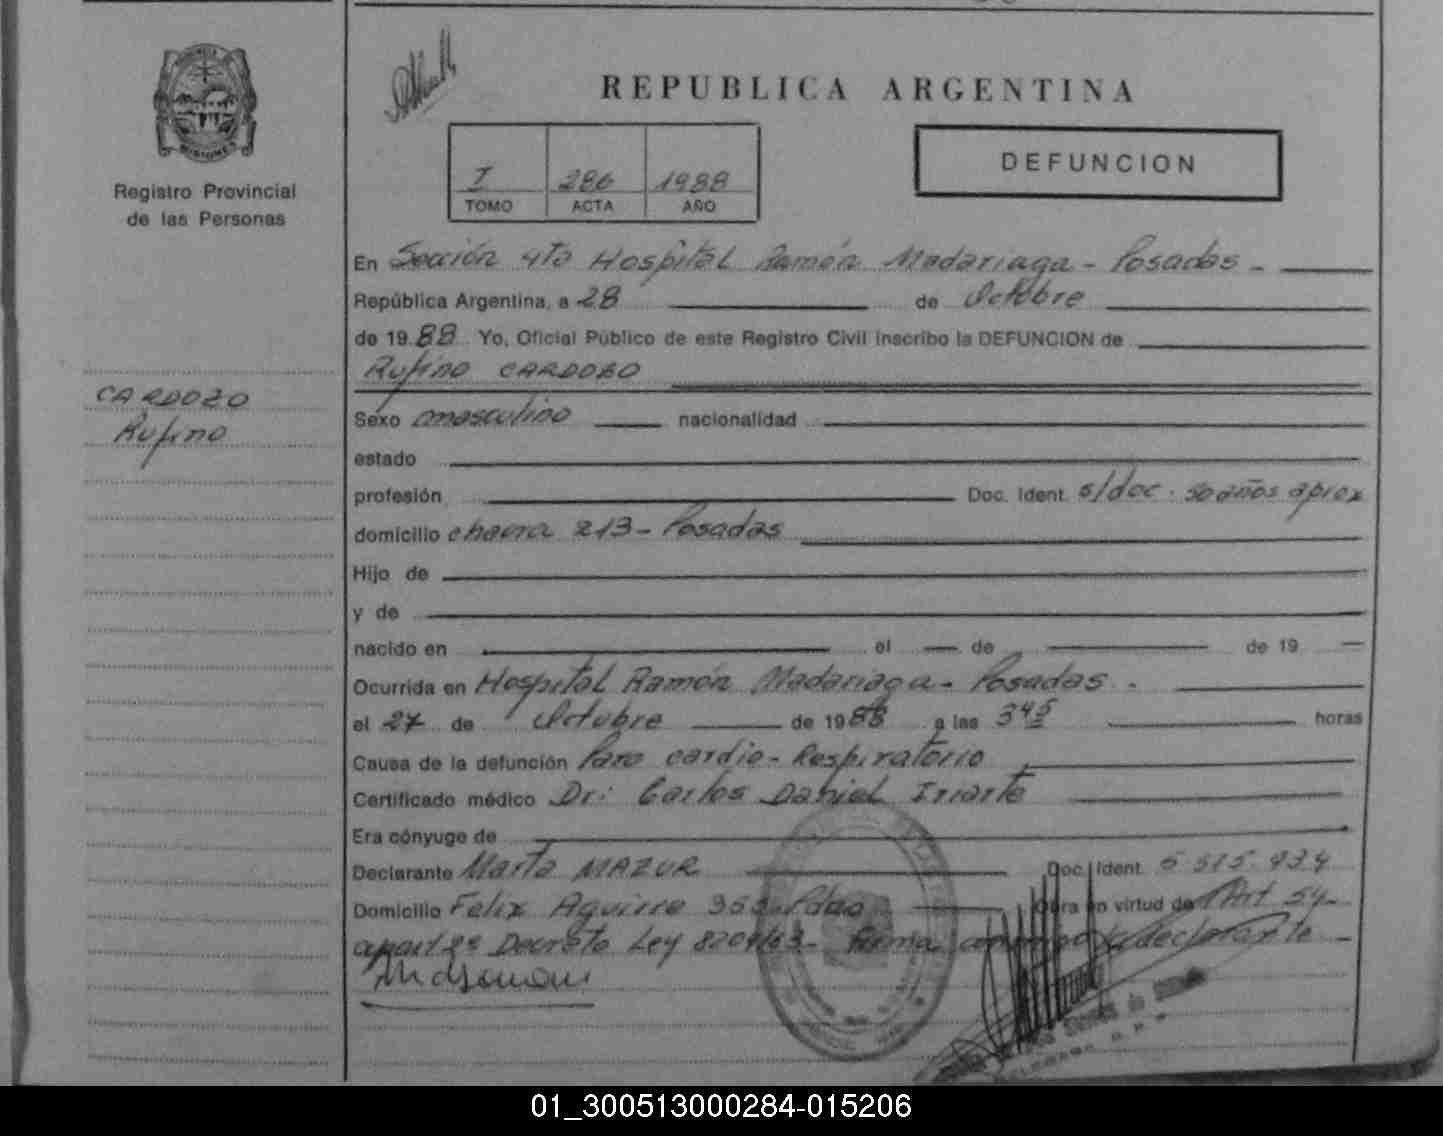 REPUBLICA ARGENTINA
MISIONES
Registro Provincial
de las Personas
I 286 1988
TOMO ACTA AÑO
DEFUNCION
En Sección 4ta Hospital Ramón Madariaga - Posadas -
República Argentina, a 28 de Octubre
de 1988 Yo, Oficial Público de este Registro Civil inscribo la DEFUNCION de
Rufino CARDOZO
CARDOZO
Rufino
Sexo masculino nacionalidad
estado
profesión Doc. Ident. s/doc. 50 años aprox
domicilio chacra 213 - Posadas
Hijo de
y de
nacido en el de de 19
Ocurrida en Hospital Ramón Madariaga - Posadas -
el 27 de Octubre de 1988 a las 3 45 horas
Causa de la defunción Paro cardio-Respiratorio
Certificado médico Dr: Carlos Daniel Iriarte
Era cónyuge de
Declarante Marta MAZUR Doc. Ident.
Domicilio Felix Aguirre Pdas Obra en virtud de Art 54-
apart 2º Decreto Ley 8204/63- firma conmigo declarante -
01_300513000284-015206